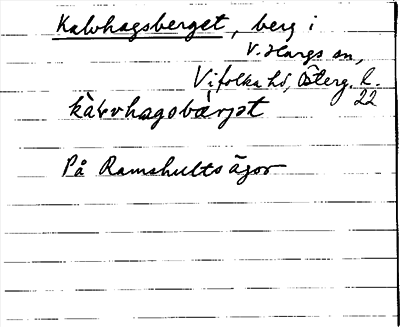 Kalvhagsberget, berg i
V. Hargs sn,
Vifolka hd, Österg. l.
22
kàlvhagsbärjət
På Ramshults ägor